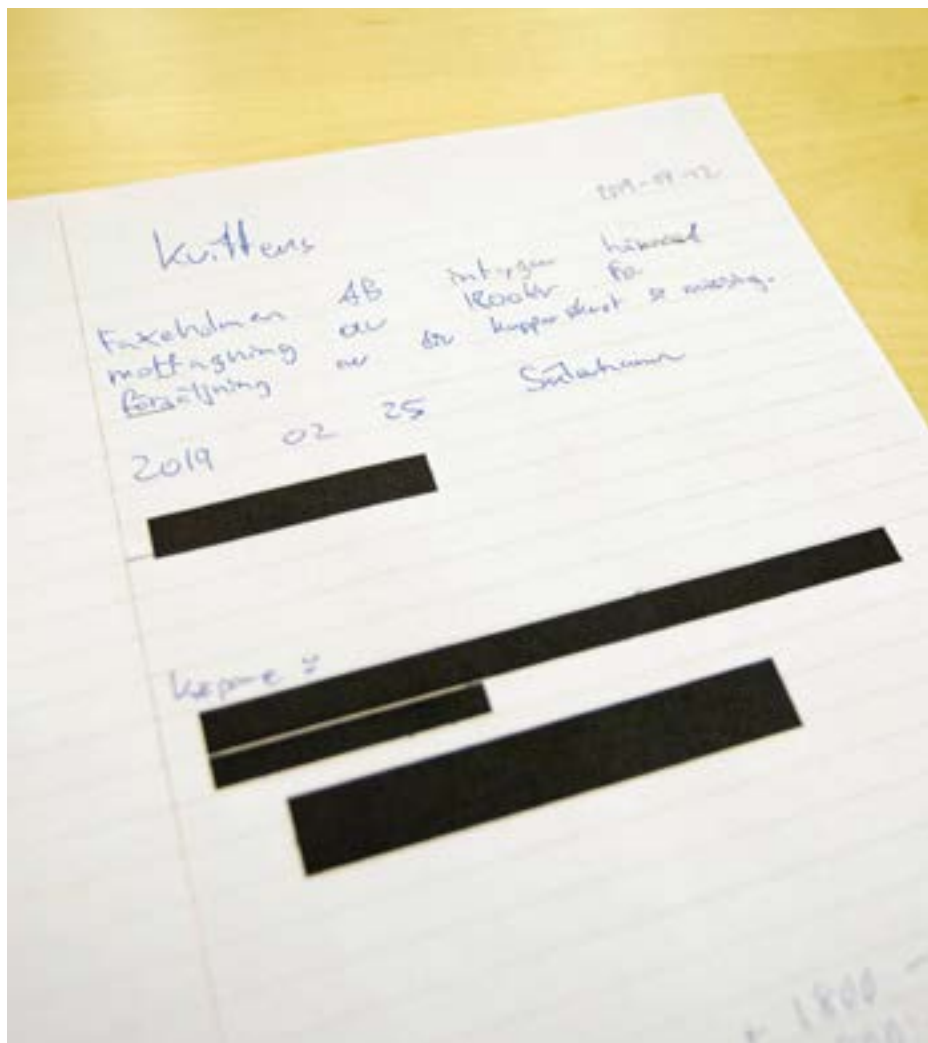 Kvittens
Faxeholmen AB intygar härmed
mottagning av 1800kr för
försäljning av div kopparskrot &
2019 02 25 Söderhamn
Köpare :
1800